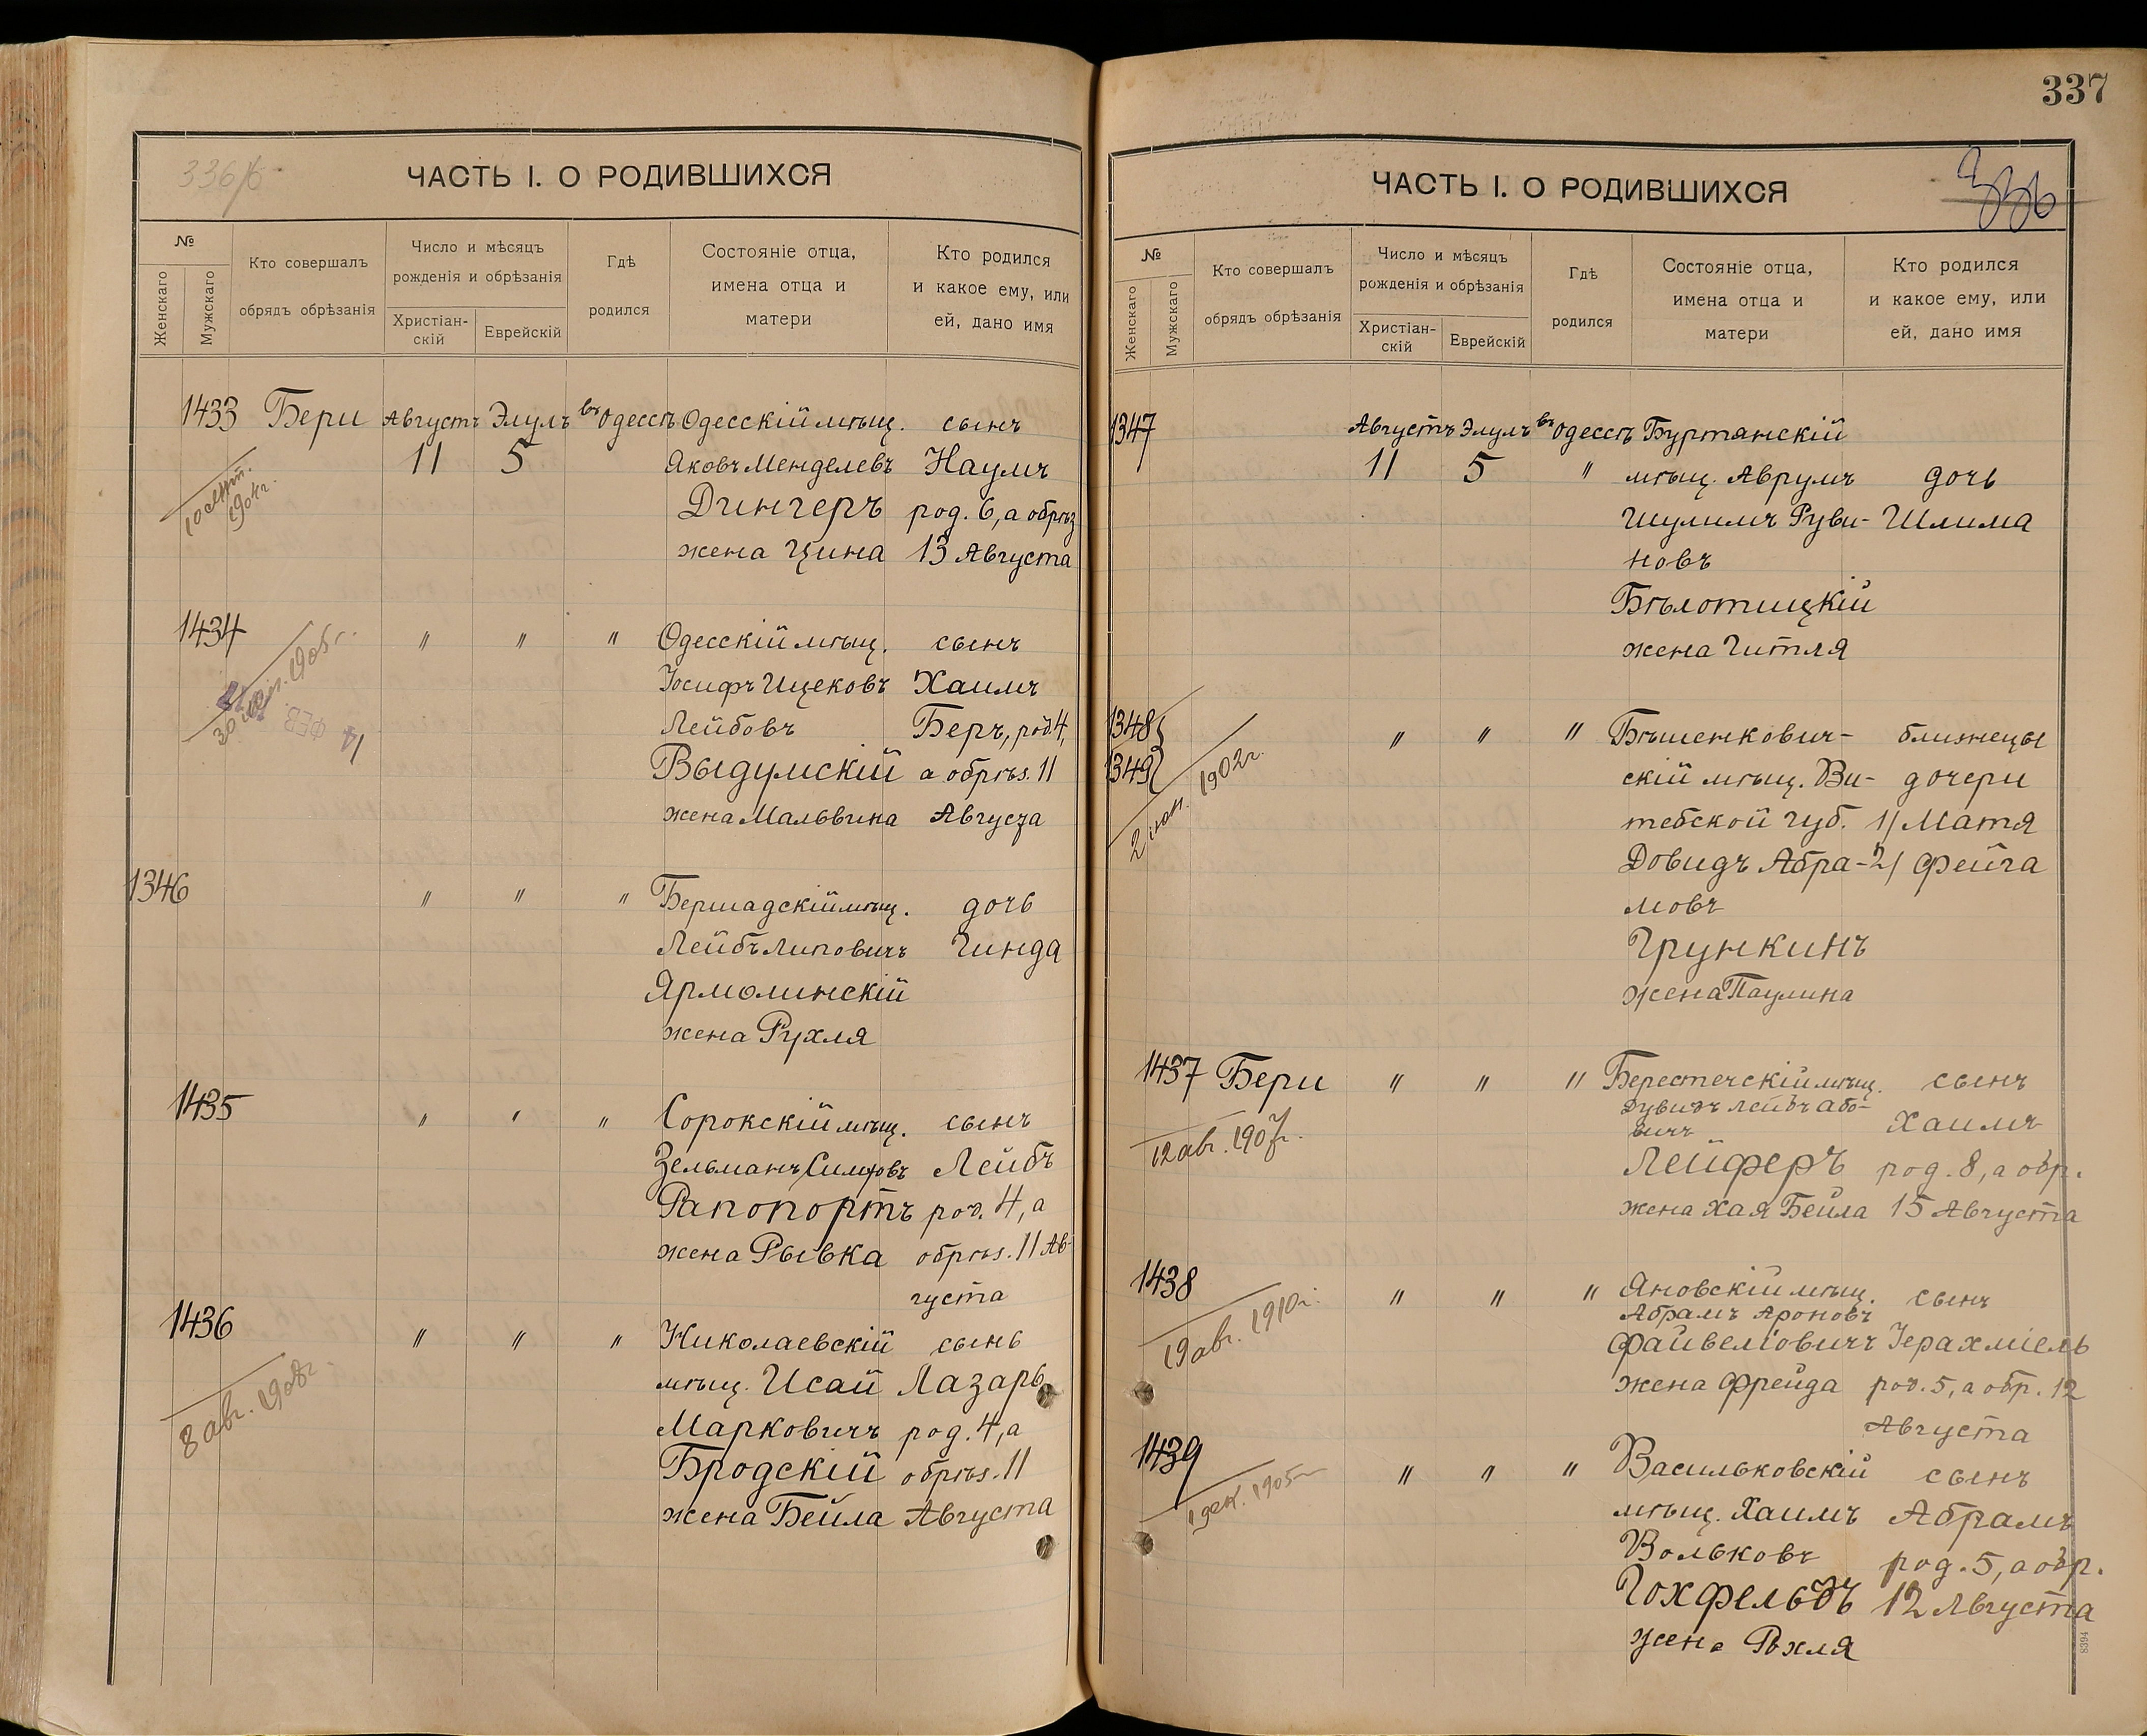 336/б
ЧАСТЬ I. О РОДИВШИХСЯ
№
Женскаго
Мужскаго
Кто совершалъ
обрядъ обрѣзанія
Число и мѣсяцъ
рожденія и обрѣзанія
Христіан-
скій
Еврейскій
Гдѣ
родился
Состояніе отца,
имена отца и
матери
Кто родился
и какое ему, или
ей, дано имя
1433 Бери Августъ Элулъ въ Одессѣ Одесскій мѣщ. сынъ
11 5 Яковъ Менделевъ Наумъ
Дингеръ род. 6, а обрѣз
жена Цина 13 Августа
1904г.
1434 " " " Одесскій мѣщ. сынъ
Іосифъ Ицековъ Хаимъ
Лейбовъ Беръ, род. 4,
Выдумскій а обрѣз. 11
жена Мальвина Августа
1905г.
14 ФЕВ
1346 " " " Бершадскій мѣщ. дочь
Лейбъ Липовичъ Гинда
Ярмолинскій
жена Рухля
1435 " " " Сорокскій мѣщ. сынъ
Зельманъ Симховъ Лейбъ
Рапопортъ род. 4, а
жена Рывка обрѣз. 11 Ав-
густа
1436 " " " Николаевскій сынъ
мѣщ. Исай Лазарь
Марковичъ род. 4, а
Бродскій обрѣз. 11
жена Бейла Августа
8 авг. 1908г.
337
336
ЧАСТЬ I. О РОДИВШИХСЯ
№
Женскаго
Мужскаго
Кто совершалъ
обрядъ обрѣзанія
Число и мѣсяцъ
рожденія и обрѣзанія
Христіан-
скій
Еврейскій
Гдѣ
родился
Состояніе отца,
имена отца и
матери
Кто родился
и какое ему, или
ей, дано имя
1347 Августъ Элулъ въ Одессѣ Буртянскій
11 5 " мѣщ. Аврумъ дочь
Шулимъ Руви- Шлима
новъ
Бѣлотицкій
жена Гитля
1348 " " " Бѣшенкович- близнецы
1349 скій мѣщ. Ви- дочери
тебской губ. 1/ Матя
Довидъ Абра- 2/ Фейга
мовъ
Грункинъ
жена Паулина
2 1902г.
1437 Бери " " " Берестечскій мѣщ. сынъ
Дувидъ Лейбъ Або-
вичъ Хаимъ
Лейферъ род. 8, а обр.
жена Хая Бейла 15 Августа
12 авг. 1907г.
1438 " " " Яновскій мѣщ. сынъ
Абрамъ Ароновъ
Файвеліовичъ Іерахміель
жена Фрейда род. 5, а обр. 12
Августа
19 авг. 1910г.
1439 " " " Васильковскій сынъ
мѣщ. Хаимъ Абрамъ
Вольковъ род. 5, а обр.
Гохфельдъ 12 Августа
жена Рхля
дек. 1905
8394